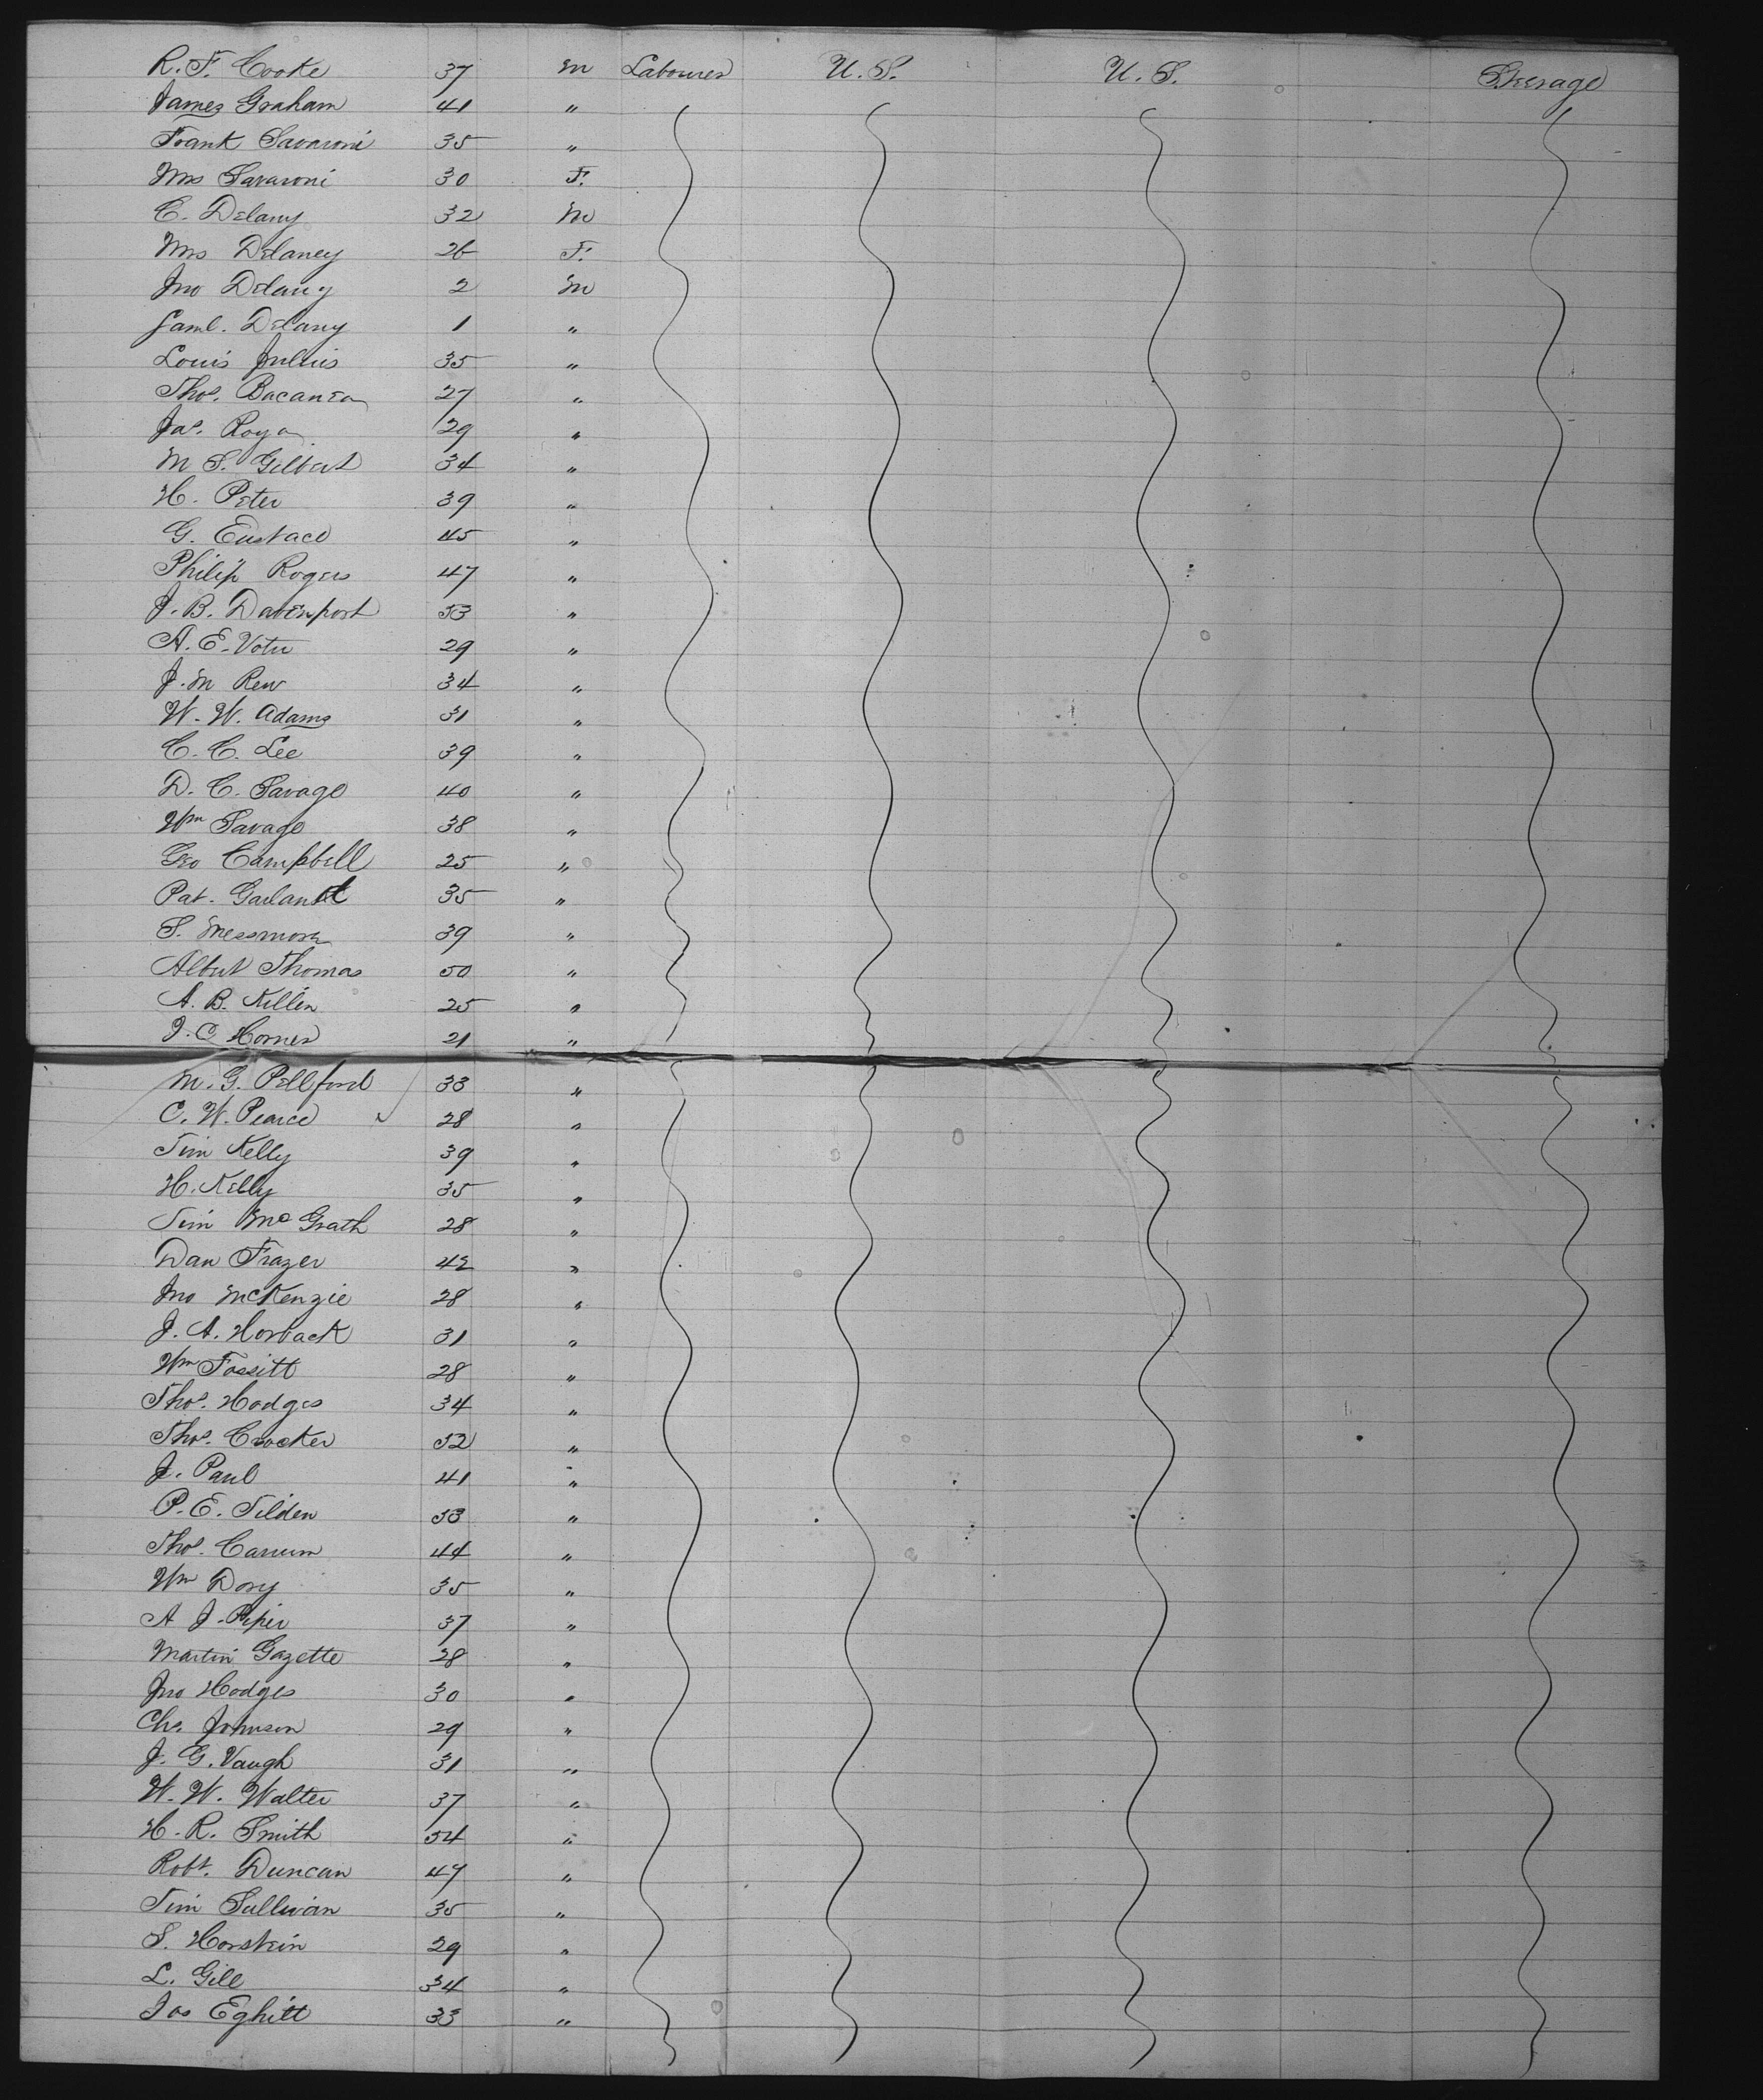 R. F. Cooke 37 m Labourer U. S. U. S. Steerage
James Graham 41 "
Frank Savaroni 35 "
Mrs Savaroni 30 F.
C. Delany 32 m
Mrs Delaney 26 F.
Jno Delany 2 m
Saml. Delany 1 "
Louis Julius 35 "
Thos. Bacanea 27 "
Jas. Roya 29 "
M S. Gilbert 34 "
H. Peter 39 "
G. Eustace 45 "
Philip Rogers 47 "
J. B. Davenport 53 "
A. E. Votu 29 "
J. M Rew 34 "
W. W. Adams 31 "
C. C. Lee 39 "
D. C. Savage 40 "
Wm Savage 38 "
Geo Campbell 25 "
Pat. Garland 35 "
S. Messmore 39 "
Albert Thomas 50 "
A. B. Killen 25 "
J. C Horner 21 "
M. G. Pellford 33 "
C. W. Pearce 28 "
Tim Kelly 39 "
H. Kelly 35 "
Tim McGrath 28 "
Dan Frazer 42 "
Jno McKenzie 28 "
J. A. Horback 31 "
Wm Fossitt 28 "
Thos. Hodges 34 "
Thos. Crocker 52 "
J. Paul 41 "
P. E. Tilden 53 "
Thos. Carrum 44 "
Wm Dory 35 "
A J. Piper 37 "
Martin Gazette 28 "
Jno Hodges 30 "
Chs. Johnson 29 "
J. G. Vaugh 31 "
W. W. Walter 37 "
H. R. Smith 54 "
Robt. Duncan 47 "
Tim Sullivan 35 "
S. Horstein 29 "
L. Gill 34 "
Jos Eghitt 33 "